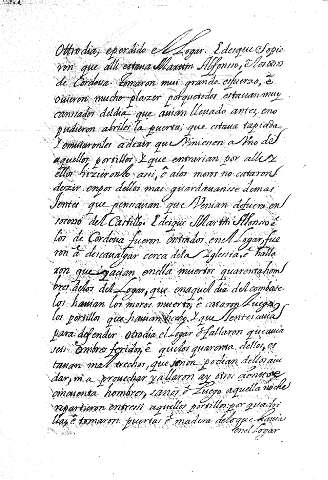 Otro dia, e perdido el Logar. E desque Sopie
ron que alli estava Martin Alfonso, e los otros
de Cordova tomaron mui grande esfuerzo, e
ovieron mucho plazer porque todos estavan muy
cansados del dia que avian llevado antes, e no
pudieron abrilles la puerta, que estava tapida
E embiaronles a dezir que Viniesen a Uno de
aquellos portillos, E que entrarian por alli. E
ellos hizieronlo asi, e a los moros no cataron
dezir, en por dellos mas guardavanse de mas
Gentes que pensavan que Venian de fuera en
socorro del Castillo. E desque Martin Alonso e
los de Cordova fueron entrados en el Lugar, fue
ron a descavalgar cerca de la Iglesia, e halla
ron que yazian en ella muertos quarenta hom
bres de los del Lugar, que en aquel dia del combate
los havian los moros muerto, e cataron Luego
los portillos que havian hecho, E que Gente avia
para defender otro dia el Logar e fallaron que avia
seis ombres feridos, e que los quarenta dellos, es
tavan mal trechos, que se non podian dellos aiu
dar, ni aprovechar, y allaron ay otros
cinquenta hombres, sanos, e Luego aquella noche
repartieron entre si aquellos portillos por quadri
llas, e tomaron puertas e madera de lo que havia
en el Logar